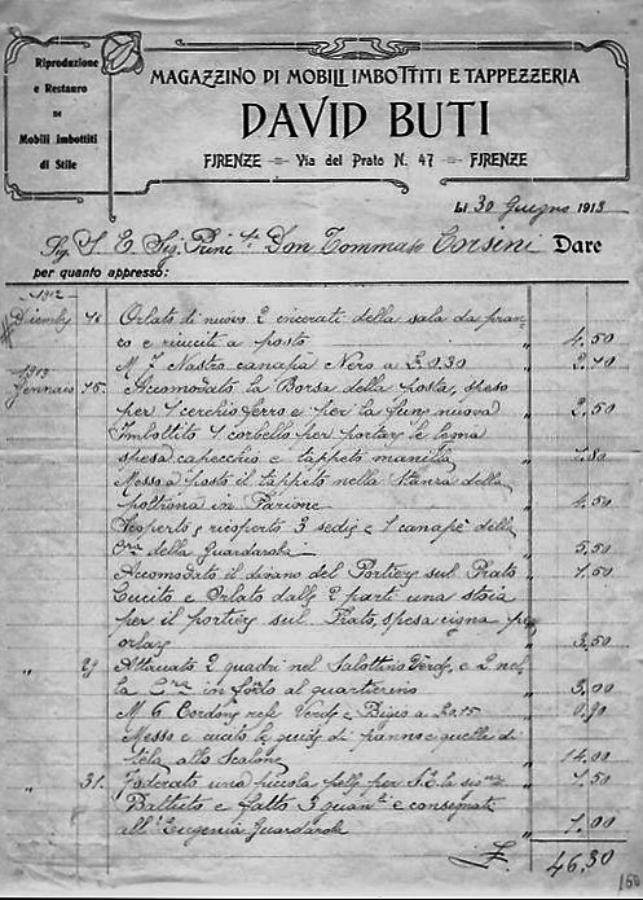 Riproduzione
e Restauro
DI
Mobili imbottiti
di Stile
MAGAZZINO DI MOBILI IMBOTTITI E TAPPEZZERIA
DAVID BUTI
FIRENZE Via del Prato N. 47 FIRENZE
Lì 30 Giugno 1913
Sig. S. E. Sig. Principe Don Tommaso Corsini Dare
per quanto appresso:
1912
Orlati di nuovo 2 encerati della sala da pran-
zo e ricuciti a posto " 4.50
M. 7 Nastro canapa Nero a £ 0.30 "
1913
Gennaio 15. Accomodato la Borsa della posta, speso
per 1 cerchio ferro e per la fune nuova " 2.50
Imbottito 1 corbello per portare le legna
spesa capecchio e tappeto manilla " 1.80
Messo a posto il tappeto nella Stanza della
poltrona in Parione " 4.50
Scoperto e ricoperto 3 sedie e 1 canapè della
Cra della Guardaroba " 5.50
Accomodato il divano del Portiere sul Prato " 1.50
Cucito e Orlato dalle 2 parti una stoia
per il portiere sul Prato, spesa cigna per
orlare " 3.50
" 29 Attaccato 2 quadri nel Salottino Verde, e 2 nel
la Cra in fondo al quartierino " 3.00
M. 6 Cordone refe Verde e Bigio a £ 0.15 " 0.90
Messo e cucito le guide di panno e quelle di
tela allo Scalone " 14.00
" 31. Foderato una piccola pelle per S. E. la sig.ra " 1.50
Battuto e fatto 3 e consegnati
all' Eugenia Guardaroba " 1.00
£ 46.30